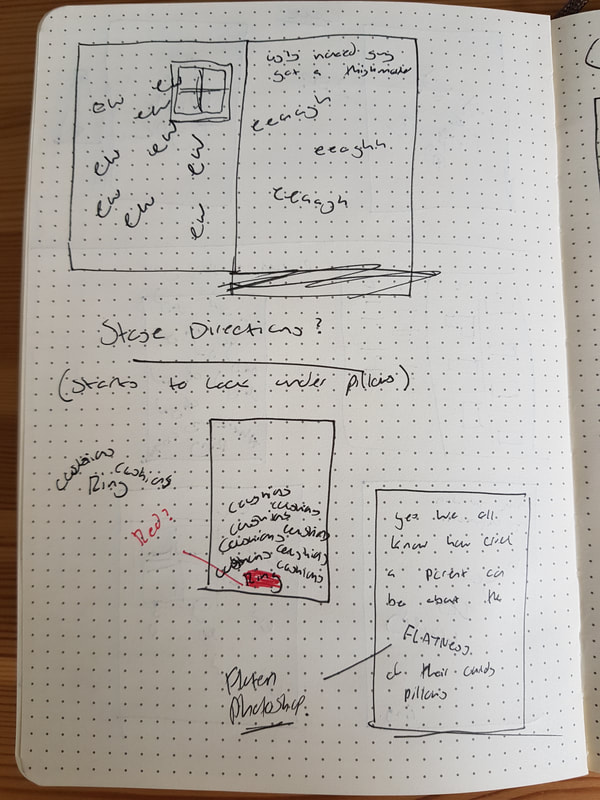 ew
ew
ew
ew
ew
ew
ew
ew
ew
got a
eeaagh
eeaghh
eeaagh
Stage Directions?
(Starts to look under pillows)
cushions
cushions
Ring
Red?
cushions
cushions
cushions
cushions
cushions
cushions
cushions
cushions
Ring
yes we all
know how
a parent can
be about the
FLATNESS
of their childs
pillows
photoshop.